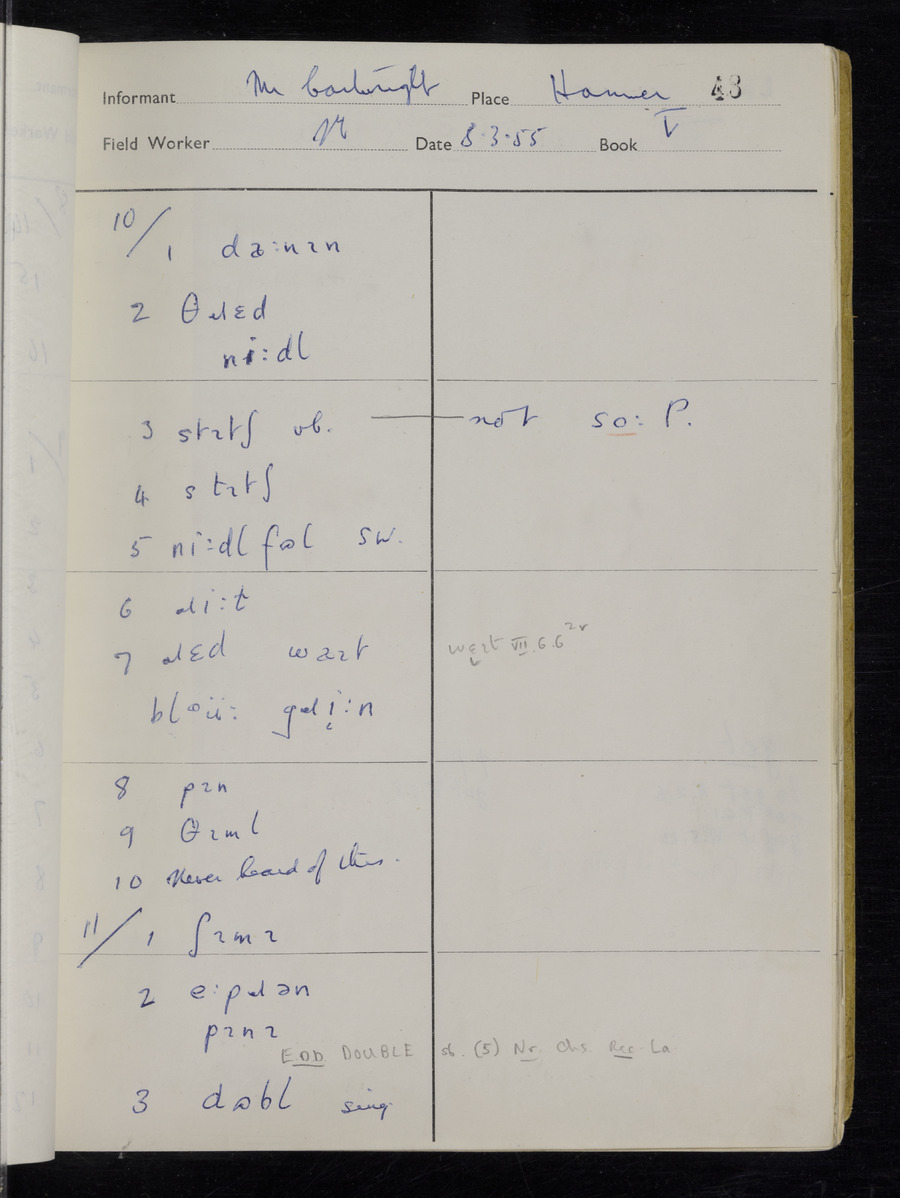 Informant Mr Cartwright Place Hanmer 43
Field Worker Date 8·3·55 Book V
10/1 dəːnɪn
2 θɹɛd
niːdl
3 stɪtʃ vb. — not soː P.
4 stɪtʃ
5 niːdl fəl sw.
6 ɹiːt
7 ɹɛd waɪt wɛɪt VII.6.6
gɹiːn
8 pɪn
9 θɪml
10 Never heard of this.
11/1 ʃɪmɪ
2 eːpɹən
pɪnɪ
EOD DOUBLE sb. (5) Nr. Chs. Rec. La.
3 dəbl sing